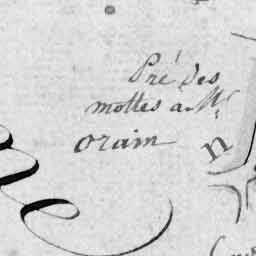 Pré des
mottes a Mr
orain
n